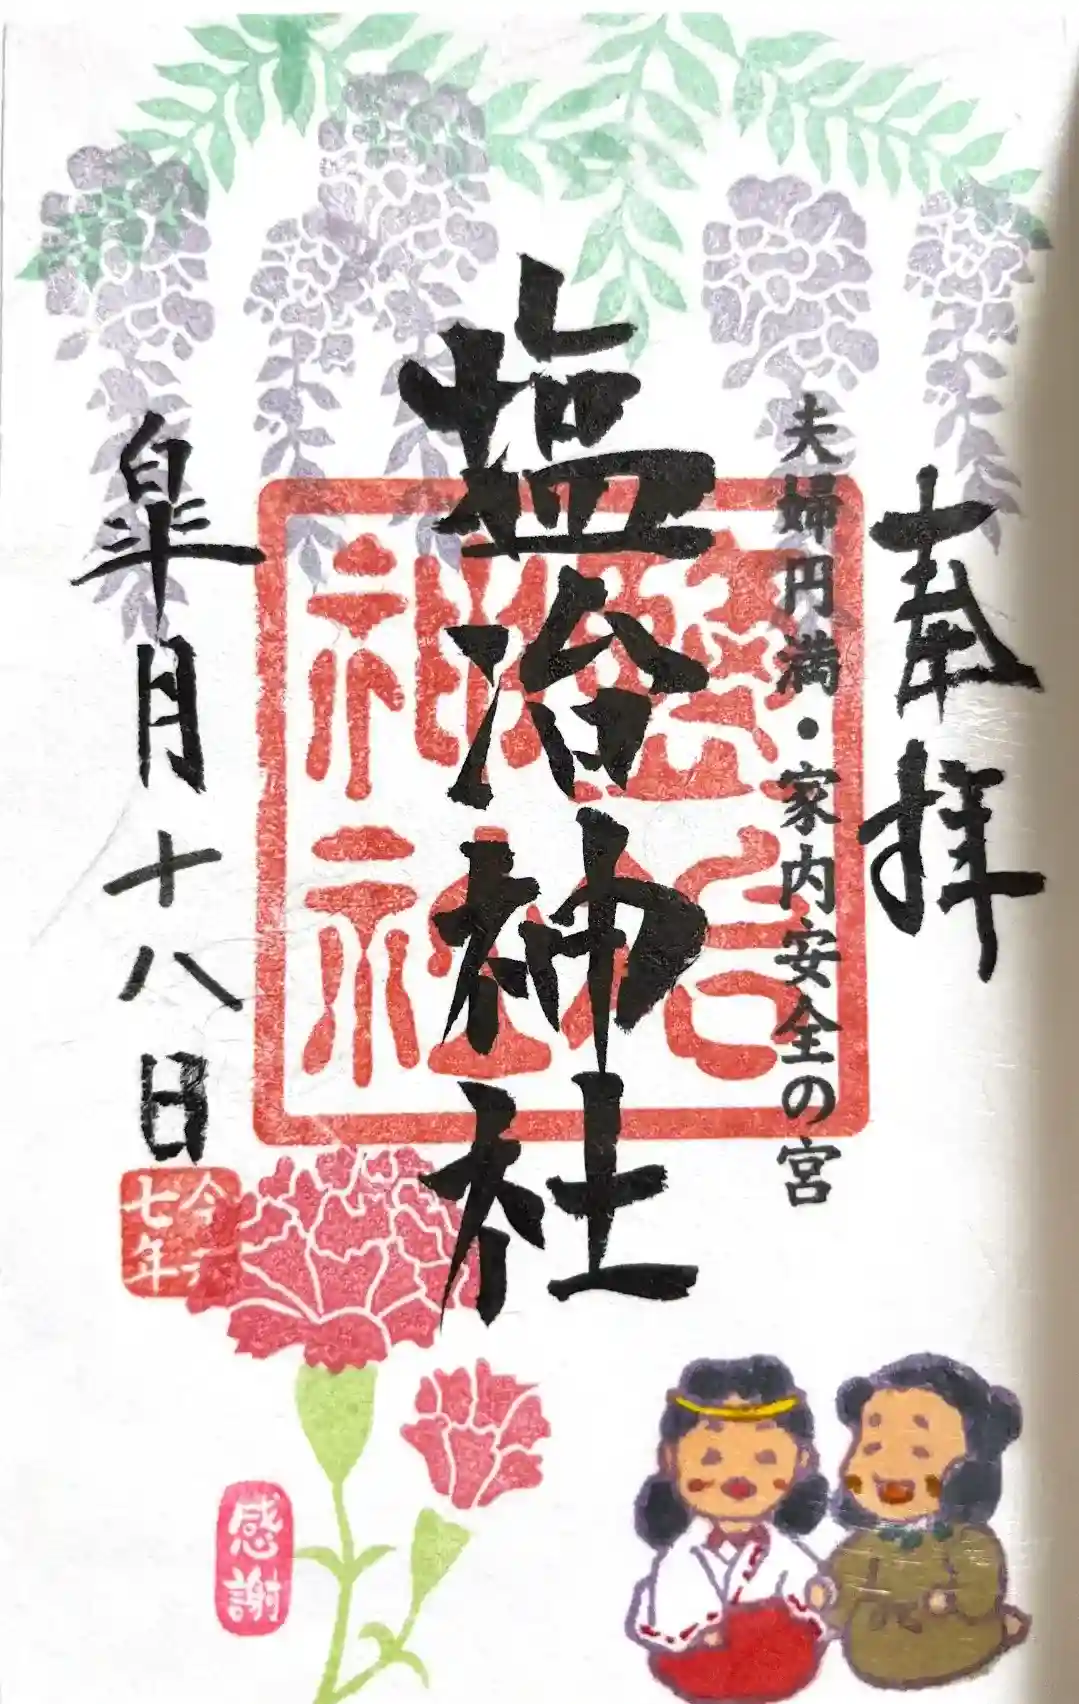 奉拝
夫婦円満・家内安全の宮
塩冶神社
皐月十八日
令和
七年
感謝